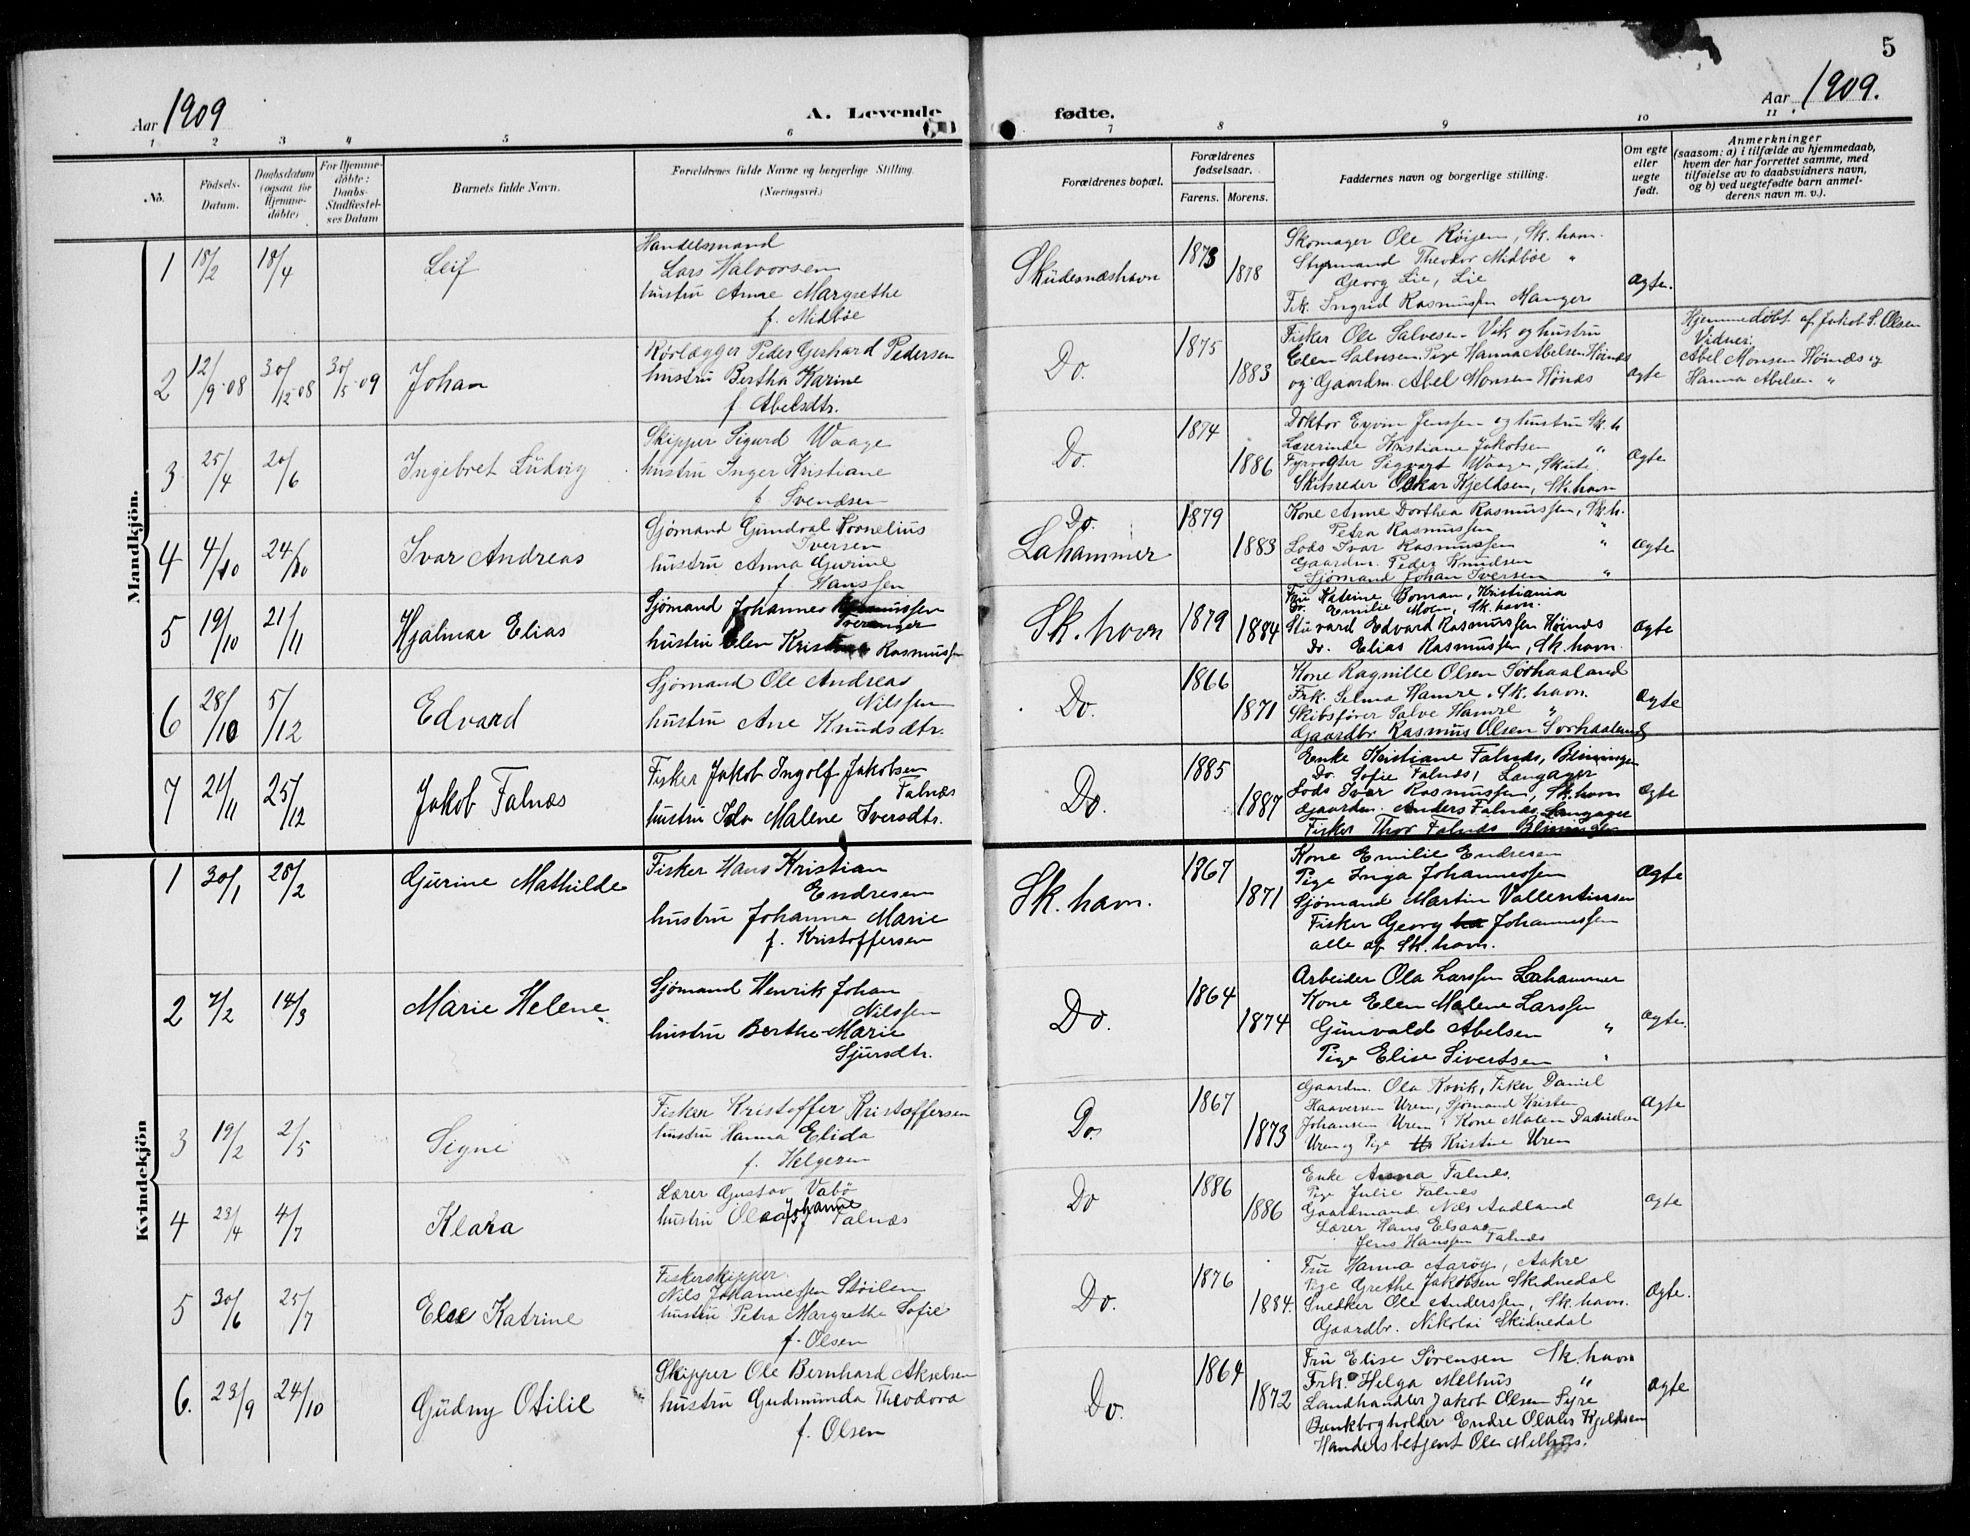 5
Aar 1909
A. Levende
fødte.
Aar 1909.
1 2 3 4 5 6 7 8 9 10 11
No.
Fødsels-
Datum.
Daabsdatum
(ogsaa for
Hjemme-
døbte)
For Hjemme-
døbte:
Daabs-
Stadfæstel-
ses Datum
Barnets fulde Navn.
Forældrenes fulde Navne og borgerlige Stilling.
(Næringsvei.)
Forældrenes bopæl.
Forældrenes
fødselsaar.
Farens. Morens.
Faddernes navn og borgerlige stilling.
Om egte
eller
uegte
født.
Anmerkninger
(saasom: a) i tilfælde av hjemmedaab,
hvem der har forrettet samme, med
tilføielse av to daabsvidners navn,
og b) ved uegtefødte barn anmel-
derens navn m. v.).
Mandkjön.
1
18/2
18/4
Leif
Handelsmand
Lars Halvorsen
hustru Anne Margrethe
f. Midbøe
Skudesnæshavn
1873
1878
Skomager Ole Røijen, Sk. havn.
Styrmand Theodor Midbøe "
Georg Lie, Lie
Frk. Ingrid Rasmussen Manger
Ægte.
2
12/9 08
30/12 08
30/5 09
Johan
Rørlægger Peder Gerhard Pedersen
hustru Bertha Karine
f Abelsdtr.
Do.
1875
1883
Fisker Ole Salvesen Vik og hustru
Elen Salvesen. Pige Hanna Abelsen Høinæs
og Gaardm. Abel Monsen Hønæs
Ægte
Hjemmedøbt af Jakob S. Olsen
Vidner:
Abel Monsen Høinæs og
Hanna Abelsen "
3
25/4
20/6
Ingebret Ludvig
Skipper Sigurd Waage
hustru Inger Kristiane
f Svendsen
Do.
1874
1886
Doktor Eyvin Jenssen og hustru Sk. h
Lærerinde Kristiane Jakobsen "
Fyrvogter Sigvart Waage, Skute
Skibsreder Oskar Kjeldsen, Sk. havn
Ægte
4
4/10
24/10
Ivar Andreas
Sjømand Gundval Kornelius
Iversen
hustru Anna Gurine
f Hanssen
Do.
Lahammer
1879
1883
Kone Anne Dorthea Rasmussen, Sk. h.
Petra Rasmussen "
Lods Ivar Rasmussen "
Gaardm. Peder Knudsen
Sjømand Johan Iversen "
Ægte
5
19/10
21/11
Hjalmar Elias
Sjømand Johannes Rasmussen
hustru Elen Rasmussen
Sk. havn
1879
1884
Fru Katrine Boman, Kristiania
Do. Emilie Moen, Sk. havn.
Stuvard Edvard Rasmussen Høinæs
Do. Elias Rasmussen, Sk. havn.
Ægte
6
28/10
5/12
Edvard
Sjømand Ole Andreas
Nilssen
hustru Ane Knudsdtr.
Do.
1866
1871
Kone Ragnille Olsen Sørhaaland
Frk. Selma Hamre, Sk. havn.
Skibsfører Salve Hamre "
Gaardbr. Rasmus Olsen Sørhaaland
Ægte
7
21/11
25/12
Jakob Falnæs
Fisker Jakob Ingolf Jakobsen
Falnæs
hustru Ida Malene Iversdtr.
Do.
1885
1887
Enke Kristiane Falnæs,
Do Sofie Falnæs, Langager
Lods Ivar Rasmussen, Sk. havn
Gaardm. Anders Falnæs Langager
Fisker Thor Falnæs
Ægte
Kvindekjön
1
30/1
28/2
Gurine Mathilde
Fisker Hans Kristian
Endresen
hustru Johanna Marie
f. Kristoffersen
Sk. havn.
1867
1871
Kone Emilie Endresen
Pige Inga Johannessen
Sjømand Martin Vallentinsen
Fisker Georg Johannessen
alle af Sk. havn.
Ægte
2
7/2
14/3
Marie Helene
Sjømand Henrik Johan
Nilssen
hustru Berthe Marie
Sjursdtr.
Do.
1864
1874
Arbeider Ola Larssen Lahammer
Kone Elen Malene Larssen
Gunvald Abelsen "
Pige Elise Sivertsen "
Ægte.
3
19/2
2/5
Signe
Fisker Kristoffer Kristoffersen
hustru Hanna Elida
f. Helgesen
Do.
1867
1873
Gaardm. Ola Kvik, Fisker Daniel
Haaversen Uren, Sjømand Kristen
Johansen Uren, Kone Malen Danielsen
Uren og Pige Kristine Uren
Ægte
4
23/4
4/7
Klara
Lærer Gustav Vabø
hustru Olea Johanne
f Falnæs
Do
1886
1886
Enke Anna Falnæs.
Pige Julie Falnæs
Gaardmand Nils Audland
Lærer Hans Elsaas
Jens Hanssen Falnæs
Ægte
5
30/6
25/7
Else Katrine
Fiskerskipper
Nils Johannessen Støilen
hustru Petra Margrethe Sofie
f. Olsen
Do.
1876
1884.
Fru Hanna Aarøy, Aakre
Pige Grethe Jakobsen Skidnedal
Snedker Ole Anderssen, Sk. havn.
Gaardbr. Nikolai Skidnedal
Ægte.
6.
23/9
24/10
Gudny Otilie
Skipper Ole Bernhard Akselsen
hustru Gudmunda Theodora
f. Olsen
Do.
1864
1872
Fru Elise Sørensen Sk. havn
Frk. Helga Melhus "
Landhandler Jakob Olsen Syre
Bankbogholder Endre Olalis Kjeldsen
Handelsbetjent Ole Melhus.
Ægte